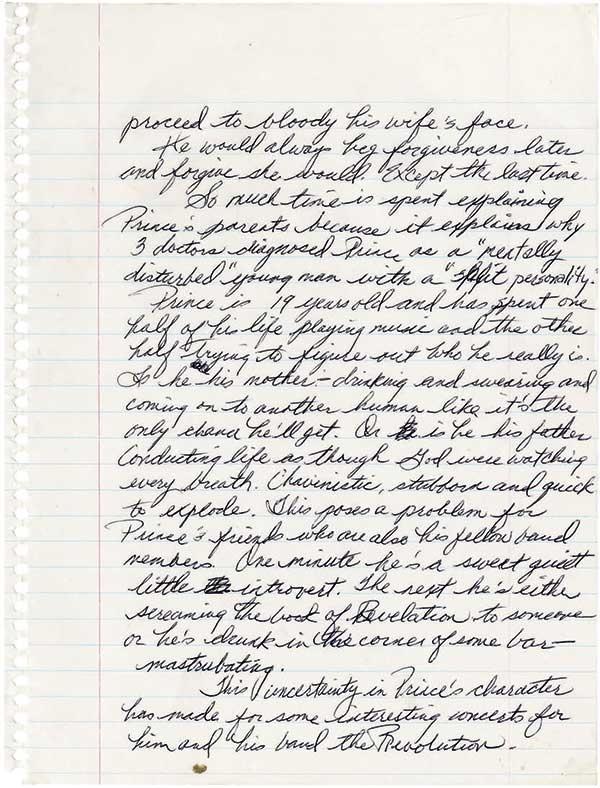 proceed to bloody his wife's face.
He would always beg forgiveness later
and forgive she would. Except the last time.
So much time is spent explaining
Prince's parents because it explains why
3 doctors diagnosed Prince as a "mentally
disturbed" young man with a "split personality."
Prince is 19 years old and has spent one
half of his life playing music and the other
half trying to figure out who he really is.
Is he his mother:- drinking and swearing and
coming on to another human like it's the
only chance he'll get. Or is he his father
Conducting life as though God were watching
every breath. Chavinistic, stubborn and quick
to explode. This poses a problem for
Prince's friends who are also his fellow band
members. One minute he's a sweet quiet
little introvert. The next he's either
screaming the book of Revelation to someone
or he's drunk in the corner of some bar-
mastrubating.
This uncertainty in Prince's character
has made for some interesting concerts for
him and his band the Revolution.